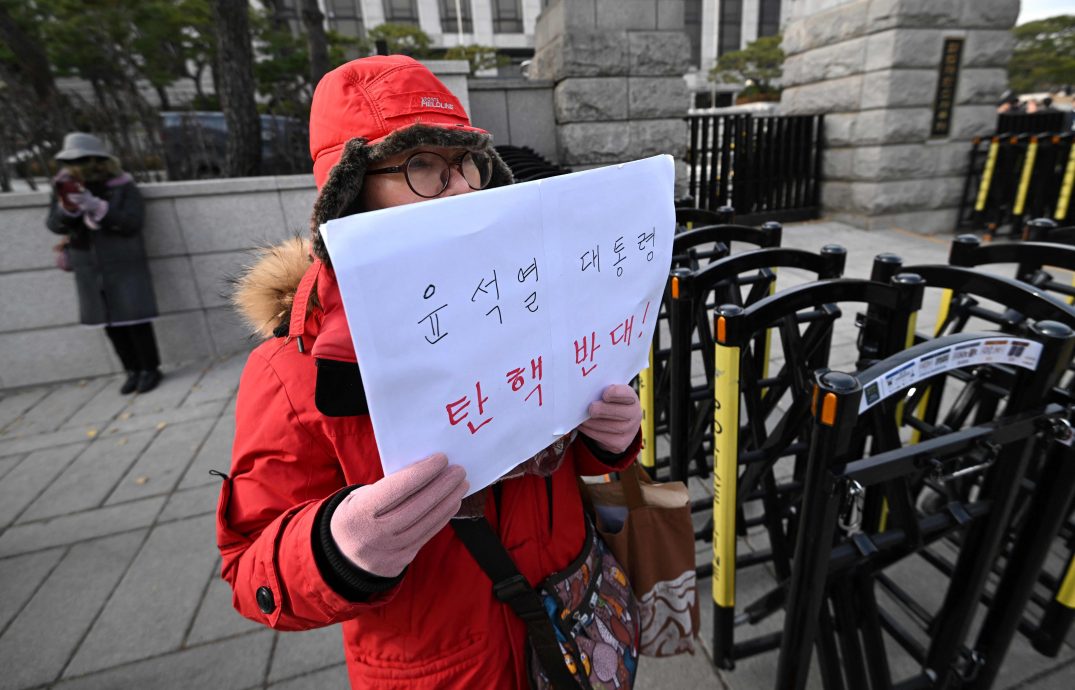 FIELDLINE
윤석열 대통령
탄핵 반대!